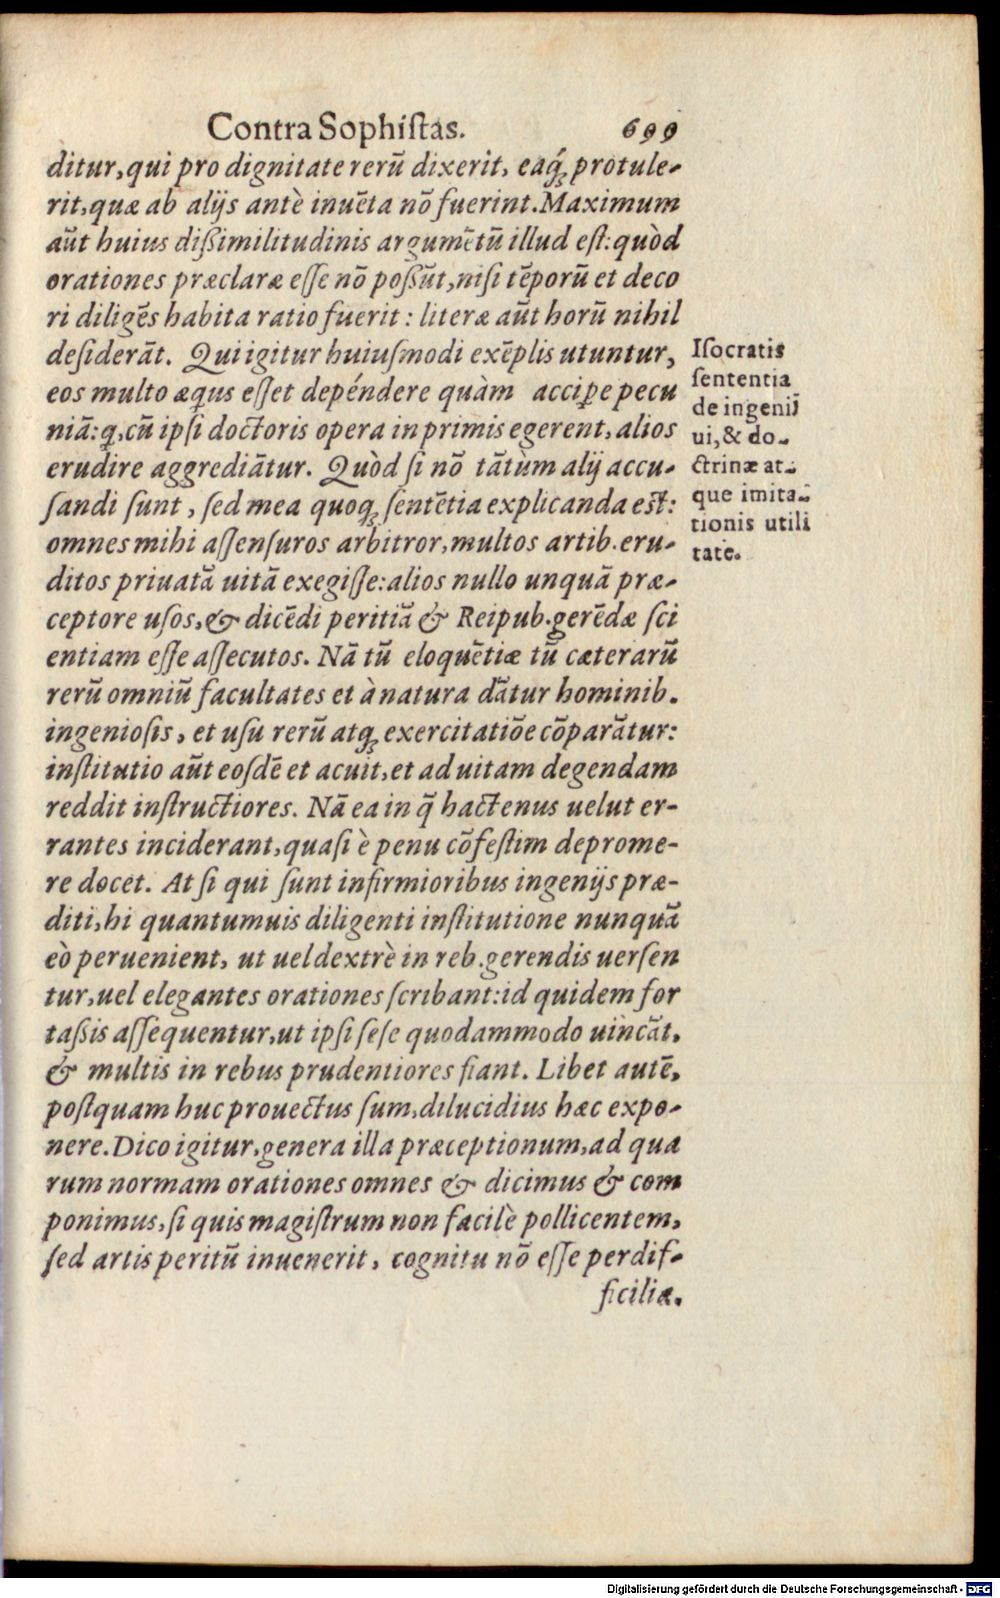 Contra Sophiſtas. 699
ditur, qui pro dignitate rerū dixerit, eaq́ꝫ protule-
rit, quæ ab alijs antè inuēta nō fuerint. Maximum
aūt huius dißimilitudinis argumētū illud eſt: quòd
orationes præclaræ eſſe nō poßūt, niſi tēporū et deco
ri diligēs habita ratio fuerit: literæ aūt horū nihil
deſiderāt. Qui igitur huiuſmodi exēplis utuntur,
eos multo æqꝰ eſſet depéndere quàm accipꝑe pecu
niā: q, cū ipſi doctoris opera inprimis egerent, alios
erudire aggrediātur. Quòd ſi nō tātùm alij accu-
ſandi ſunt, ſed mea quoqꝫ ſentētia explicanda eſt:
omnes mihi aſſenſuros arbitror, multos artib. eru-
ditos priuatā uitā exegiſſe: alios nullo unquā præ-
ceptore uſos, & dicēdi peritiā & Reipub. gerēdæ ſci
entiam eſſe aſſecutos. Nā tū eloquētiæ tū cæterarū
rerū omniū facultates et à natura dātur hominib.
ingenioſis, et uſu rerū atqꝫ exercitatiōe cōparātur:
inſtitutio aūt eoſdē et acuit, et ad uitam degendam
reddit inſtructiores. Nā ea in q̃ hactenus uelut er-
rantes inciderant, quaſi è penu cōfeſtim deprome-
re docet. At ſi qui ſunt infirmioribus ingenijs præ-
diti, hi quantumuis diligenti inſtitutione nunquā
eò peruenient, ut uel dextrè in reb. gerendis uerſen
tur, uel elegantes orationes ſcribant: id quidem for
taßis aſſequentur, ut ipſi ſeſe quodammodo uincāt,
& multis in rebus prudentiores fiant. Libet autē,
poſtquam huc prouectus ſum, dilucidius hæc expo-
nere. Dico igitur, genera illa præceptionum, ad qua
rum normam orationes omnes & dicimus & com
ponimus, ſi quis magiſtrum non facilè pollicentem,
ſed artis peritū inuenerit, cognitu nō eſſe perdif-
ficilia.
Iſocratis
ſententia
de ingenij
ui, & do-
ctrinæ at-
que imita-
tionis utili
tate.
Digitalisierung gefördert durch die Deutsche Forschungsgemeinschaft - DFG